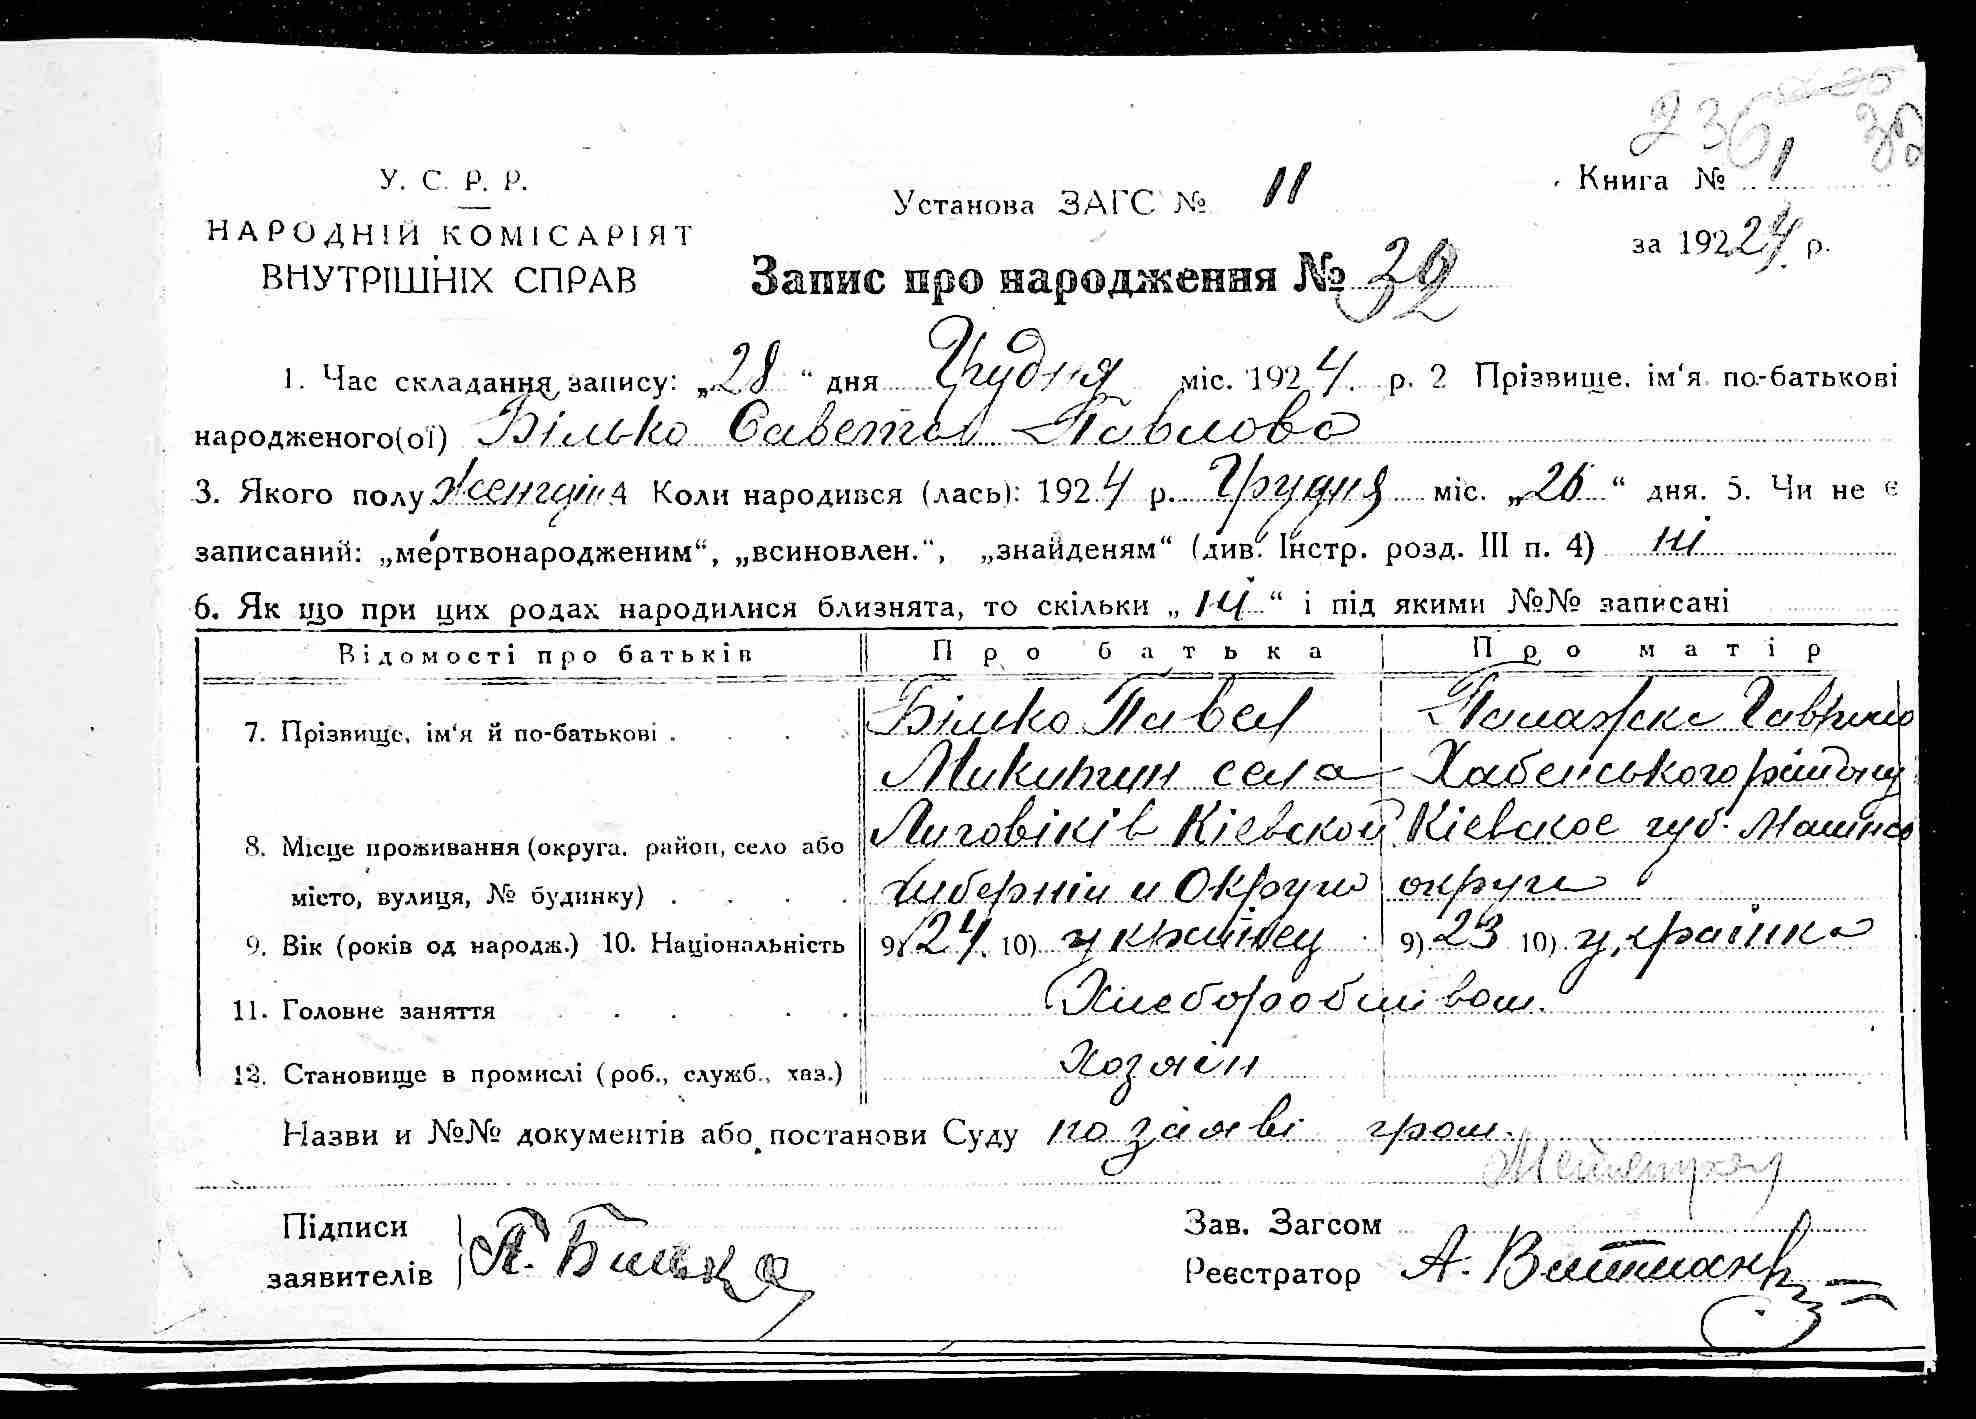 236
У. С. Р. Р.
НАРОДНІЙ КОМІСАРІЯТ
ВНУТРІШНІХ СПРАВ
Установа ЗАГС № 11
Книга № 1
за 19224 р.
Запис про народження № 32
1. Час складання запису: „28“ дня Грудня міс. 1924. р. 2 Прізвище, ім'я по-батькові
народженого(ої) Білько Савета Павлова
3. Якого полу 4 Коли народився (лась): 1924 р. Грудня міс. „26“ дня. 5. Чи не є
записаний: „мертвонародженим“, „всиновлен.“, „знайденям“ (див. Інстр. розд. III п. 4) ні
6. Як що при цих родах народилися близнята, то скільки „ні“ і під якими №№ записані
Відомості про батьків Про батька Про матір
7. Прізвище, ім'я й по-батькові . Білько Павел Палажка
Микитин села Хабенського району
8. Місце проживання (округа, район, село або Луговіків Кіевской Кіевское губ.
місто, вулиця, № будинку) . губернии и Округи округи
9. Вік (років од народж.) 10. Національність 9) 24. 10) українец 9) 23 10) українка
11. Головне заняття
12. Становище в промислі (роб., служб., хаз.) Хозяін
Назви и №№ документів або постанови Суду по заяві гром.
Підписи
заявителів П. Билько
Зав. Загсом
Реєстратор А. Витманн